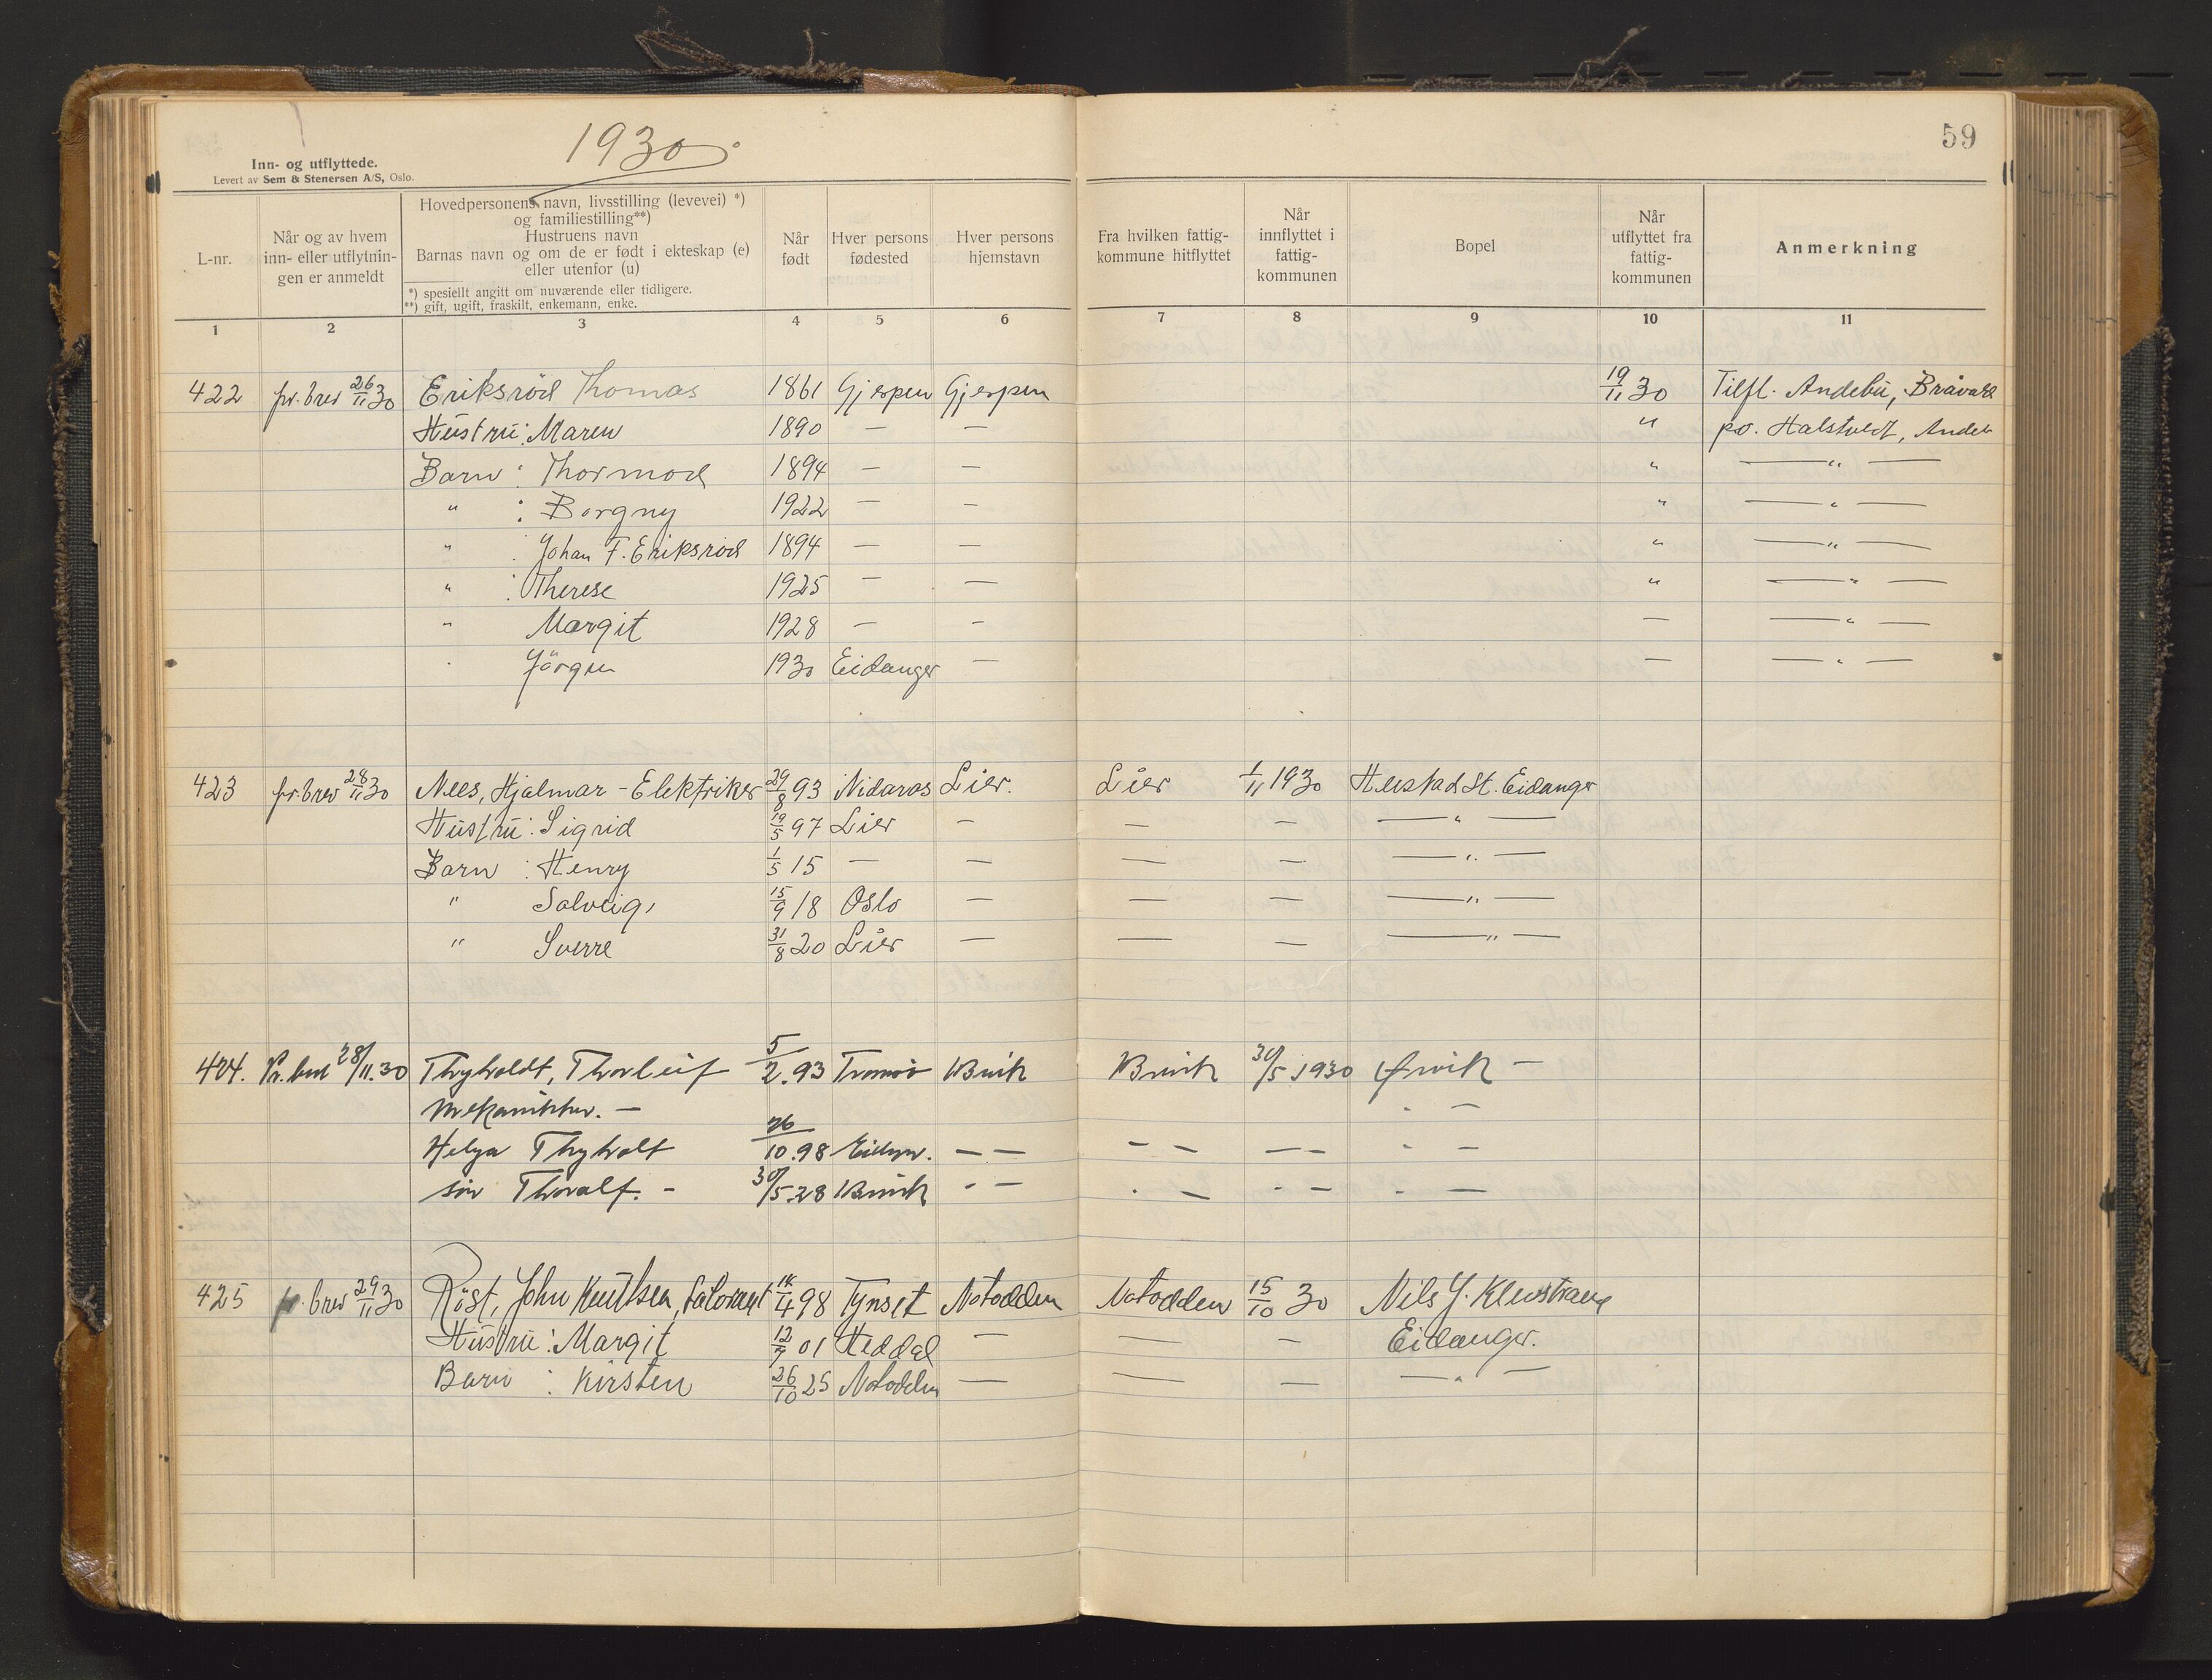 1930.
59
Inn- og utflyttede.
Levert av Sem & Stenersen A/S, Oslo.
L-nr.
Når og av hvem inn- eller utflytnin- gen er anmeldt
Hovedpersonens navn, livsstilling (levevei) *) og familiestilling**) Hustruens navn Barnas navn og om de er født i ekteskap (e) eller utenfor (u)
*) spesiellt angitt om nuværende eller tidligere.
**) gift, ugift, fraskilt, enkemann, enke.
Når født
Hver persons fødested
Hver persons hjemstavn
Fra hvilken fattig- kommune hitflyttet
Når innflyttet i fattig- kommunen
Bopel
Når utflyttet fra fattig- kommunen
Anmerkning
1 2 3 4 5 6 7 8 9 10 11
422 pr. brev 26/11 30 Eriksröd Thomas 1861 Gjerpen Gjerpen 19/11 30 Tilfl. Andebu, Bråvald
Hustru: Maren 1890 — — " po. Halstvedt, Andeb
Barn: Thormod 1894 — — " — " —
" : Borgny 1922 — — " — " —
" : Johan T. Eriksröd 1894 — — " — " —
" : Therese 1925 — — " — " —
" Margit 1928 — - — — " —
" Jörgen 1930 Eidanger — — — " —
423 pr. brev 28/11 30 Nees, Hjalmar - Elektriker 29/8 93 Nidaros Lier. Lier 1/11 1930 Heistad St. Eidanger
Hustru: Sigrid 19/5 97 Lier — — — — " —
Barn: Henry 1/5 15 — — — — — " —
" Solveig 15/9 18 Oslo — — — — " —
" Sverre 31/8 20 Lier — — — — " —
424. Pr. brev 28/11.30 Thyholdt, Thorleif 5/2.93 Tromsö Brevik Brevik 30/5 1930 Ørvik —
mekanikker. — " —
Helga Thyholt 26/10.98 Eidang. — — — — — — " —
sön Thoralf. — 30/5.28 Brevik " — " — " — " —
425 pr. brev 29/11 30 Röst, John Knutsen, 14/4 98 Tynset Notodden Notodden 15/10 30 Nils J. Klevstrand
Hustru: Margit 12/7 01 Heddal — — — Eidanger.
Barn: Kirsten 26/10 25 Notodden — — — — " —